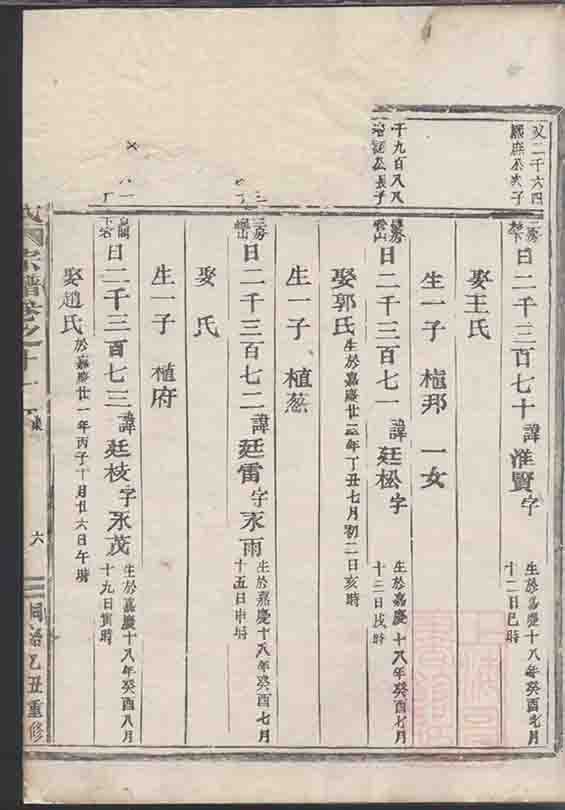 父二千六四
次子
房
日二千三百七十諱淮賢字
生於嘉慶十八年癸酉七月
十二日巳時
娶王氏
生一子 植邦 一女
千九百八八
公長子
房
雲山
日二千三百七一諱廷松字
生於嘉慶十八年癸酉七月
十二日戌時
娶郭氏
生於嘉慶廿二年丁丑七月初二日亥時
生一子 植葱
三房
日二千三百七二諱廷雷字永雨
生於嘉慶十八年癸酉七月
十五日申時
娶 氏
生一子 植府
日二千三百七三諱廷枝字永茂
生於嘉慶十八年癸酉八月
十九日寅時
娶趙氏
於嘉慶廿一年丙子十月廿六日午時
氏
宗譜卷之十一
六
同治乙丑重修
上海